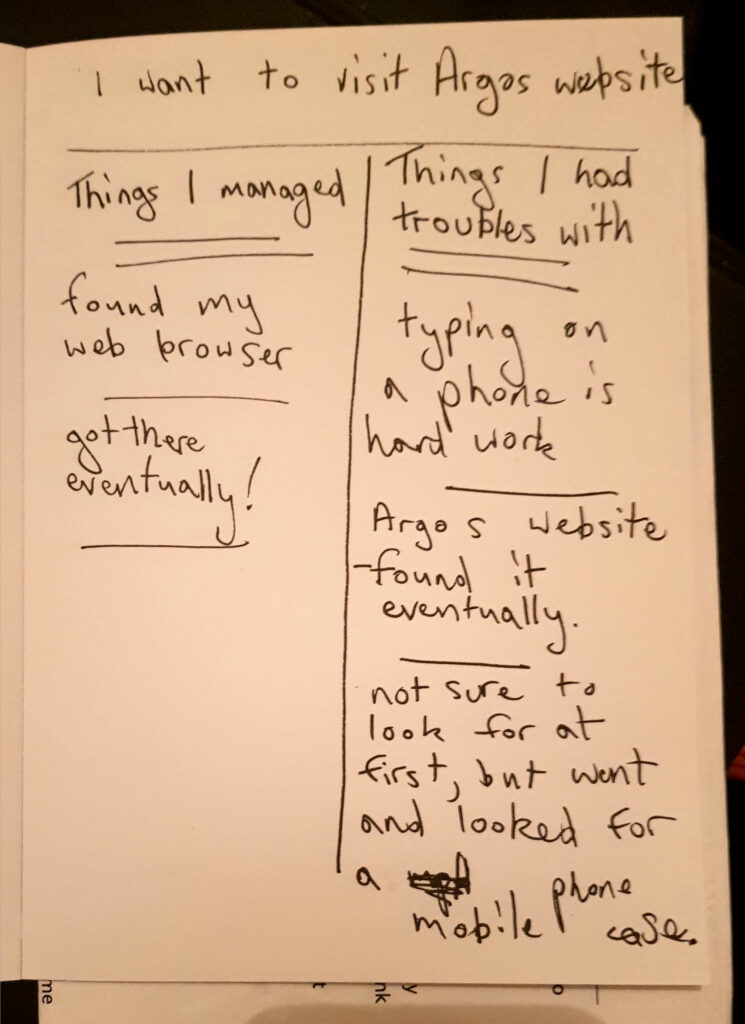 I want to visit Argos website
Things I managed
found my
web browser
got there
eventually!
Things I had
troubles with
typing on
a phone is
hard work
Argos website
-found it
eventually.
not sure to
look for at
first, but went
and looked for
a phone
mobile case.
me
t
nk
y
o